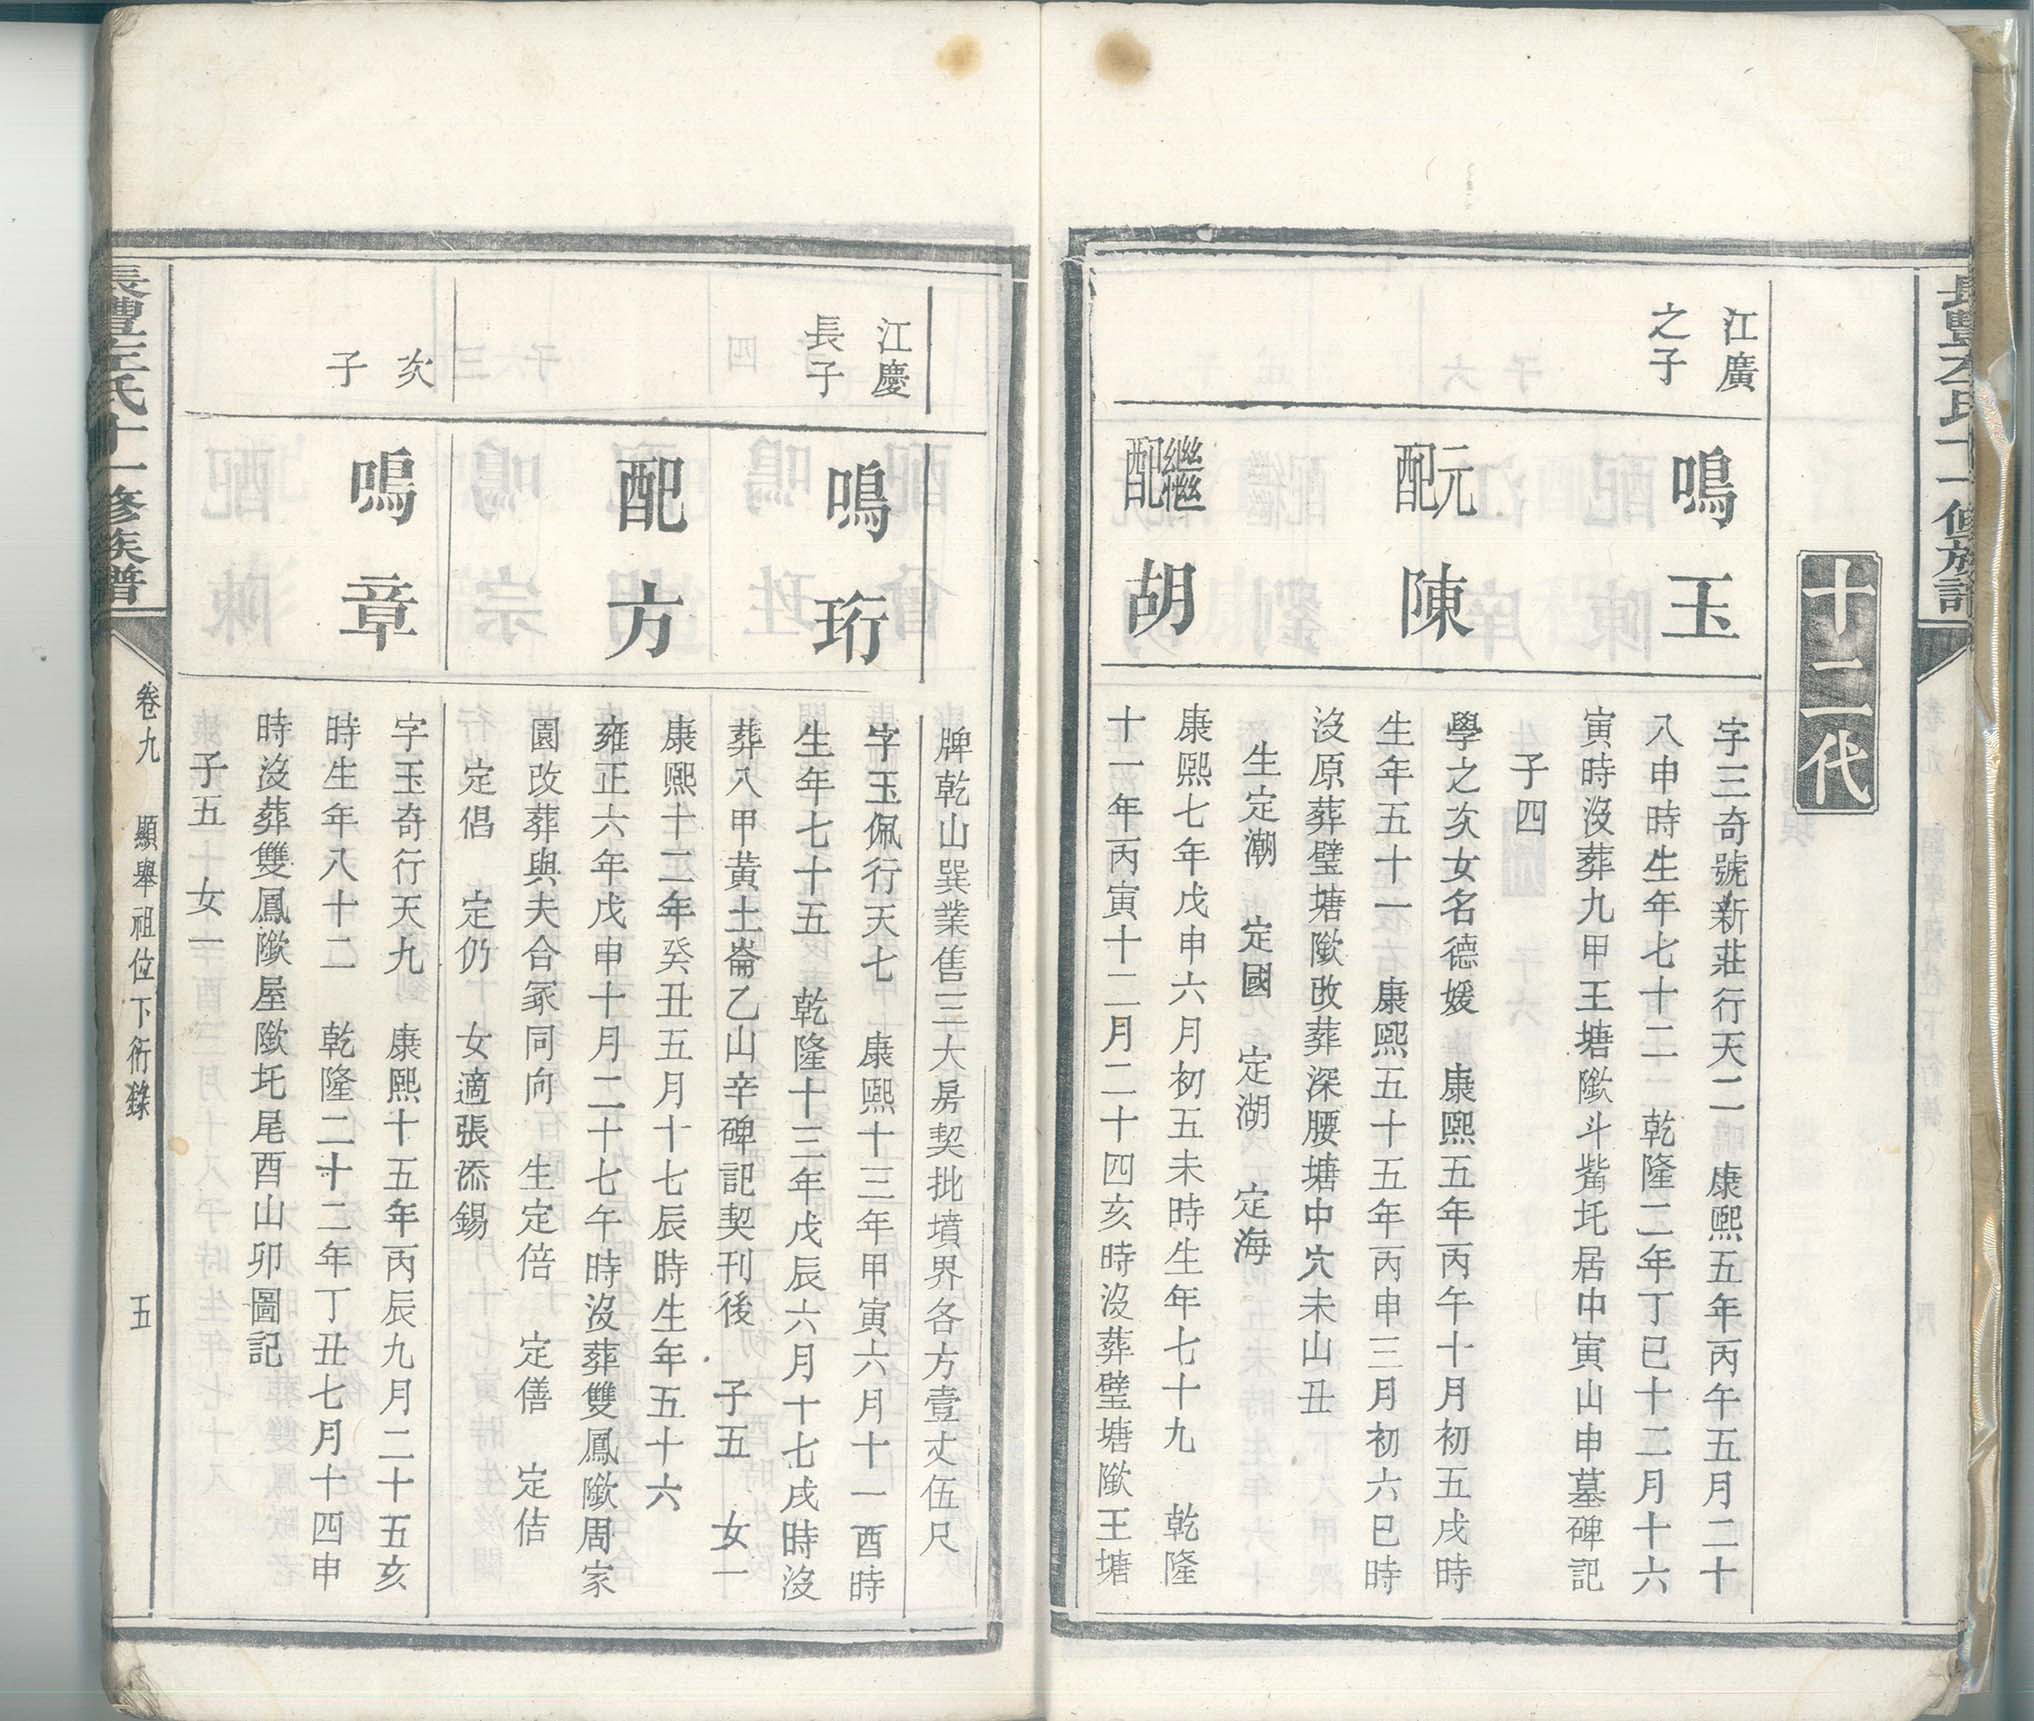 長豐左氏十一修族譜
十二代
江廣
之子
鳴玉
字三奇號新莊行天二　康熙五年丙午五月二十
八申時生年七十二　乾隆二年丁巳十二月十六
寅時沒葬九甲王塘歘斗觜圫居中寅山申墓碑記
子四
元配陳
學之次女名德媛　康熙五年丙午十月初五戌時
生年五十一　康熙五十五年丙申三月初六巳時
沒原葬璧塘歘改葬深腰塘中穴未山丑
生定潮　定國　定湖　定海
繼配胡
康熙七年戊申六月初五未時生年七十九　乾隆
十一年丙寅十二月二十四亥時沒葬璧塘歘王塘
牌乾山巽業售三大房契批墳界各方壹丈伍尺
江慶
長子
鳴珩
字玉佩行天七　康熙十三年甲寅六月十一酉時
生年七十五　乾隆十三年戊辰六月十七戌時沒
葬八甲黃土崙乙山辛碑記契刊後　子五　女一
配方
康熙十二年癸丑五月十七辰時生年五十六
雍正六年戊申十月二十七午時沒葬雙鳳歘周家
園改葬與夫合冢同向　生定倍　定僐　定佶
定倡　定仍　女適張添錫
次
子
鳴章
字玉奇行天九　康熙十五年丙辰九月二十五亥
時生年八十二　乾隆二十二年丁丑七月十四申
時沒葬雙鳳歘屋歘圫尾酉山卯圖記
子五　女一
長豐左氏十一修族譜
卷九　顯舉祖位下衍錄　五